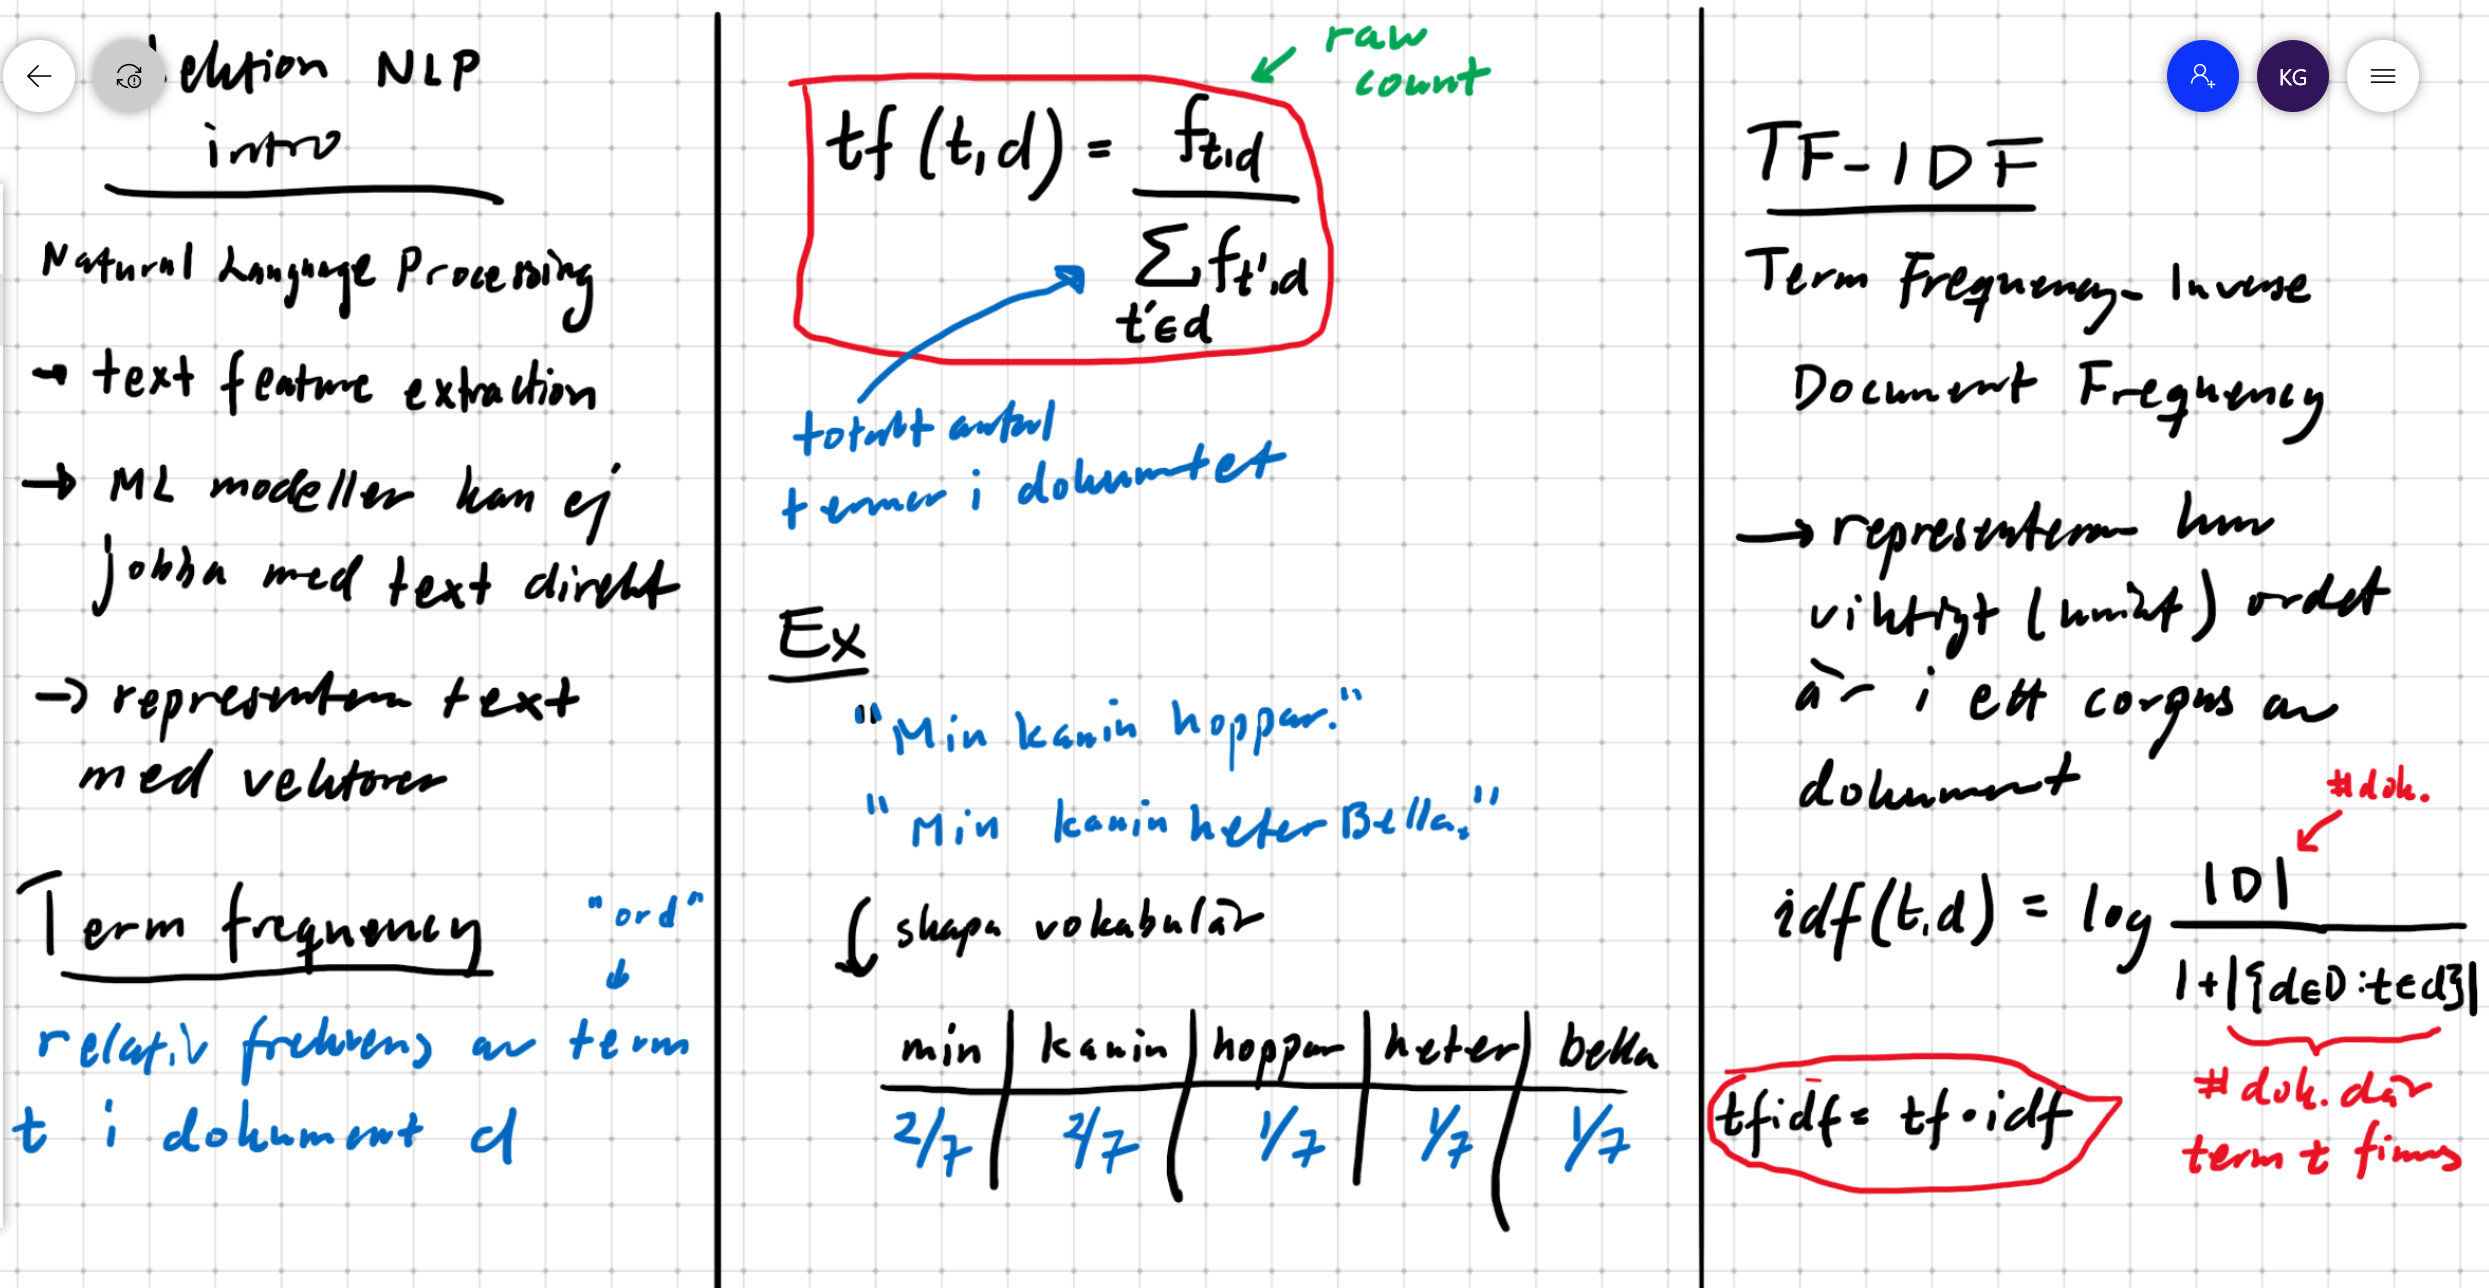 lektion NLP
intro
Natural Language Processing
→ text feature extraction
→ ML modeller kan ej
jobba med text direkt
→ representera text
med vektorer
Term frequency
"ord"
relativ frekvens av term
t i dokument d
raw
count
tf(t,d) = f_{t,d} / Σ_{t'∈d} f_{t',d}
totalt antal
termer i dokumentet
Ex
"Min kanin hoppar."
"Min kanin heter Bella."
skapa vokabulär
min | kanin | hoppar | heter | bella
2/7 | 2/7 | 1/7 | 1/7 | 1/7
KG
TF-IDF
Term Frequency - Inverse
Document Frequency
→ representerar hur
viktigt (unikt) ordet
är i ett corpus av
dokument
#dok.
idf(t,d) = log |D| / 1+|{d∈D:t∈d}|
tfidf = tf·idf
#dok. där
term t finns